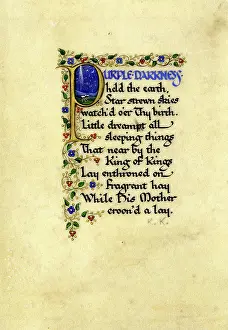 PURPLE·DARKNESS·
hdd the earth,
Star strewn skies
watch'd o'er Thy birth.
Little dreampt all
sleeping things
That near by the
King of Kings
Lay enthroned on
fragrant hay
While His Mother
croon'd a lay.